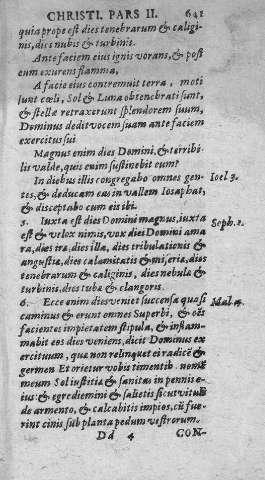 CHRISTI. PARS II. 641
quia prope est dies tenebrarum & caligi-
nis, dies nubis & turbinis.
Ante faciem eius ignis vorans, & post
eum exurens flamma,
A facie eius contremuit terra, moti
sunt cœli, Sol & Luna obtenebrati sunt,
& stellæ retraxerunt splendorem suum,
Dominus dedit vocem suam ante faciem
exercitus sui
Magnus enim dies Domini, & terribi-
lis valde, quis enim sustinebit eum?
In diebus illis congregabo omnes gen-
tes, & deducam eas in vallem Iosaphat,
& disceptabo cum eis ibi.
Ioel 3.
5. Iuxta est dies Domini magnus, iuxta
est & velox nimis, vox diei Domini ama
ra, dies iræ, dies illa, dies tribulationis &
angustiæ, dies calamitatis & miseriæ, dies
tenebrarum & caliginis, dies nebulæ &
turbinis, dies tubæ & clangoris.
Soph. 1.
6. Ecce enim dies veniet succensa quasi
caminus & erunt omnes Superbi, & oēs
facientes impietatem stipula, & inflam-
mabit eos dies veniens, dicit Dominus ex
ercituum, qua non relinquet ei radicē &
germen Et orietur vobis timentib. nomē
meum Sol iustitiæ & sanitas in pennis e-
ius: & egrediemini & salietis sicut vituli
de armento, & calcabitis impios, cū fue-
rint cinis sub planta pedum vestrorum.
Mal. 4.
Dd 4 CON-